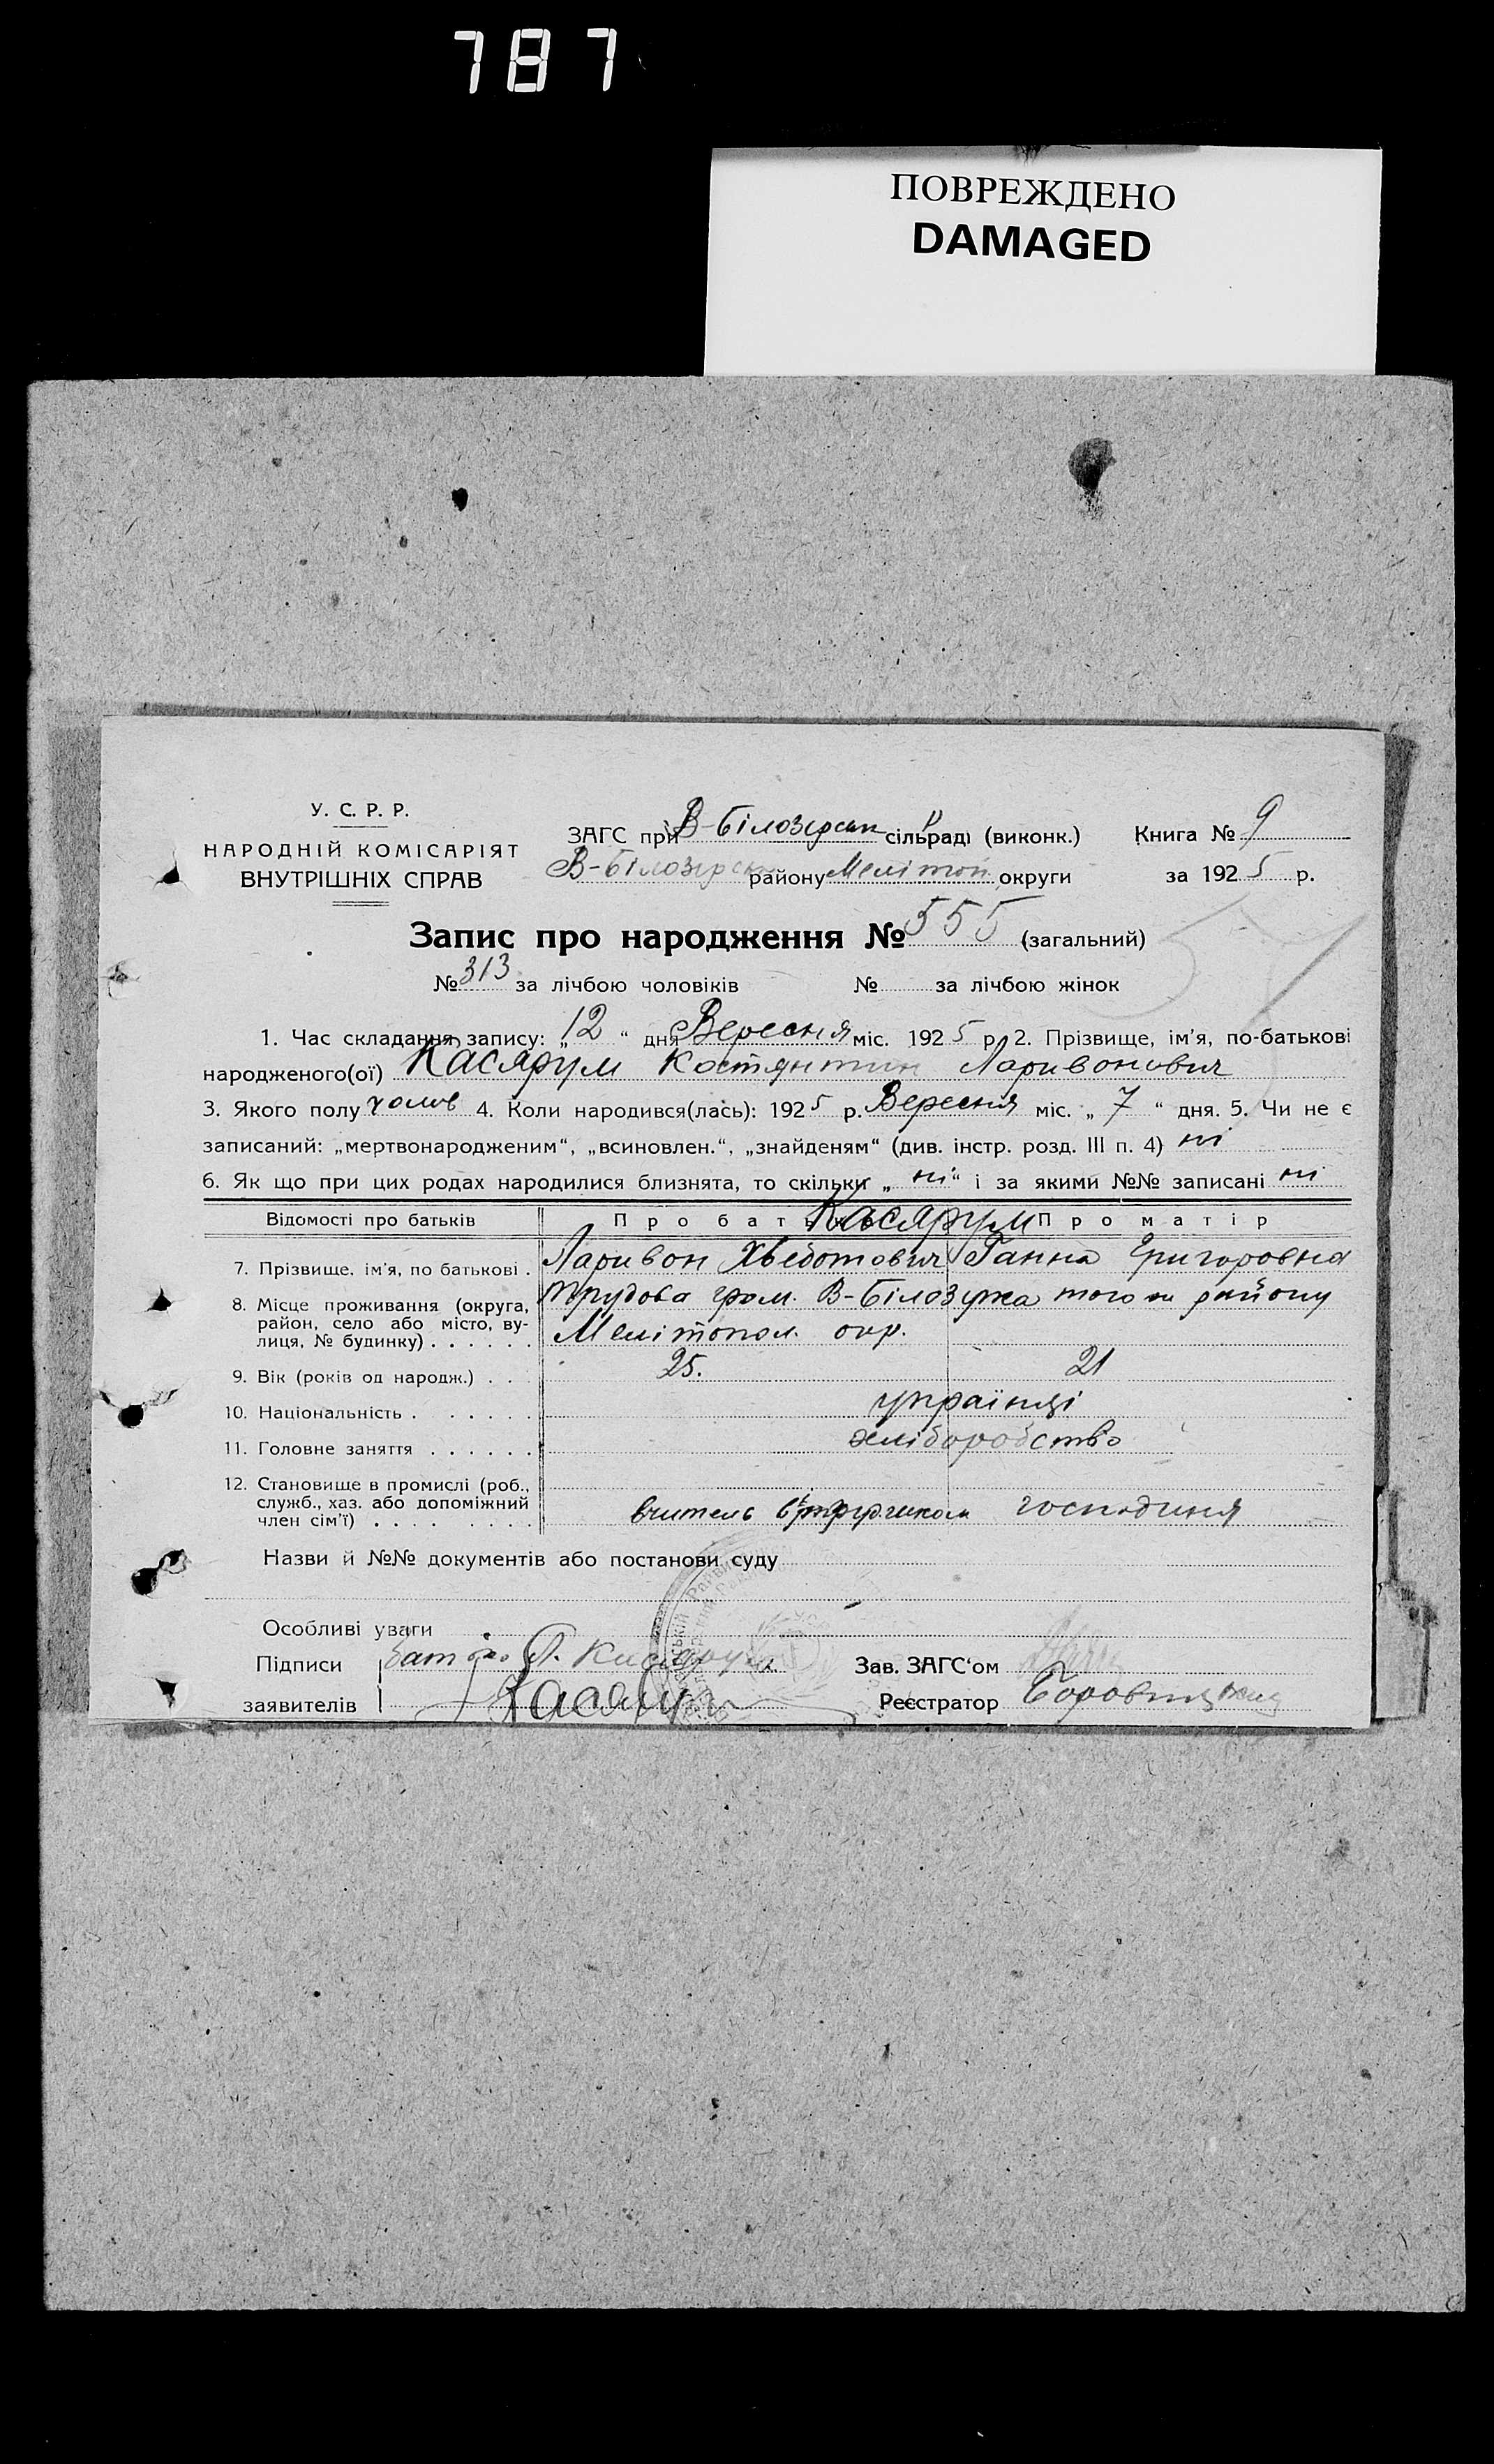 787
ПОВРЕЖДЕНО
DAMAGED
У. С. Р. Р.
НАРОДНІЙ КОМІСАРІЯТ
ВНУТРІШНІХ СПРАВ
ЗАГС при В-Білозерськ сільраді (виконк.) Книга № 9
В-Білозерськ району Мелітоп. округи за 1925 р.
Запис про народження № 555 (загальний)
№ 313 за лічбою чоловіків № за лічбою жінок
1. Час складання запису: „12“ дня Вересня міс. 1925 р. 2. Прізвище, ім'я, по-батькові
народженого(ої) Касярум Костянтин Ларивонович
3. Якого полу чолов 4. Коли народився(лась): 1925 р. Вересня міс. „7“ дня. 5. Чи не є
записаний: „мертвонародженим“, „всиновлен.“, „знайденям“ (див. інстр. розд. III п. 4) ні
6. Як що при цих родах народилися близнята, то скільки „ні“ і за якими №№ записані ні
Відомості про батьків Про батька Касярум Про матір
7. Прізвище, ім'я, по батькові . Ларивон Хведотович Ганна Григоровна
8. Місце проживання (округа, район, село або місто, вулиця, № будинку) . . . . . . Трудова гром. В-Білозірка того ж району
Мелітопол. окр.
9. Вік (років од народж.) . . . 25. 21
10. Національність . . . . . . . українці
11. Головне заняття . . . . . . хліборобство
12. Становище в промислі (роб.,
служб., хаз. або допоміжний
член сім'ї) . . . . . . . . . вчитель господиня
Назви й №№ документів або постанови суду
Особливі уваги
Підписи батько Л. Касярум Зав. ЗАГС'ом
заявителів Касярум Реєстратор